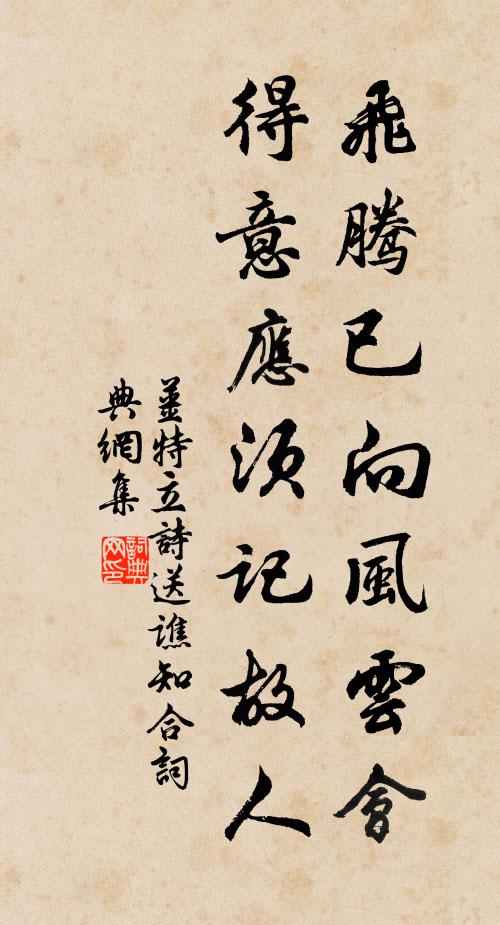 飛騰已向風雲會
得意應須記故人
薑特立詩送譙知合詞
典網集
詞典網印